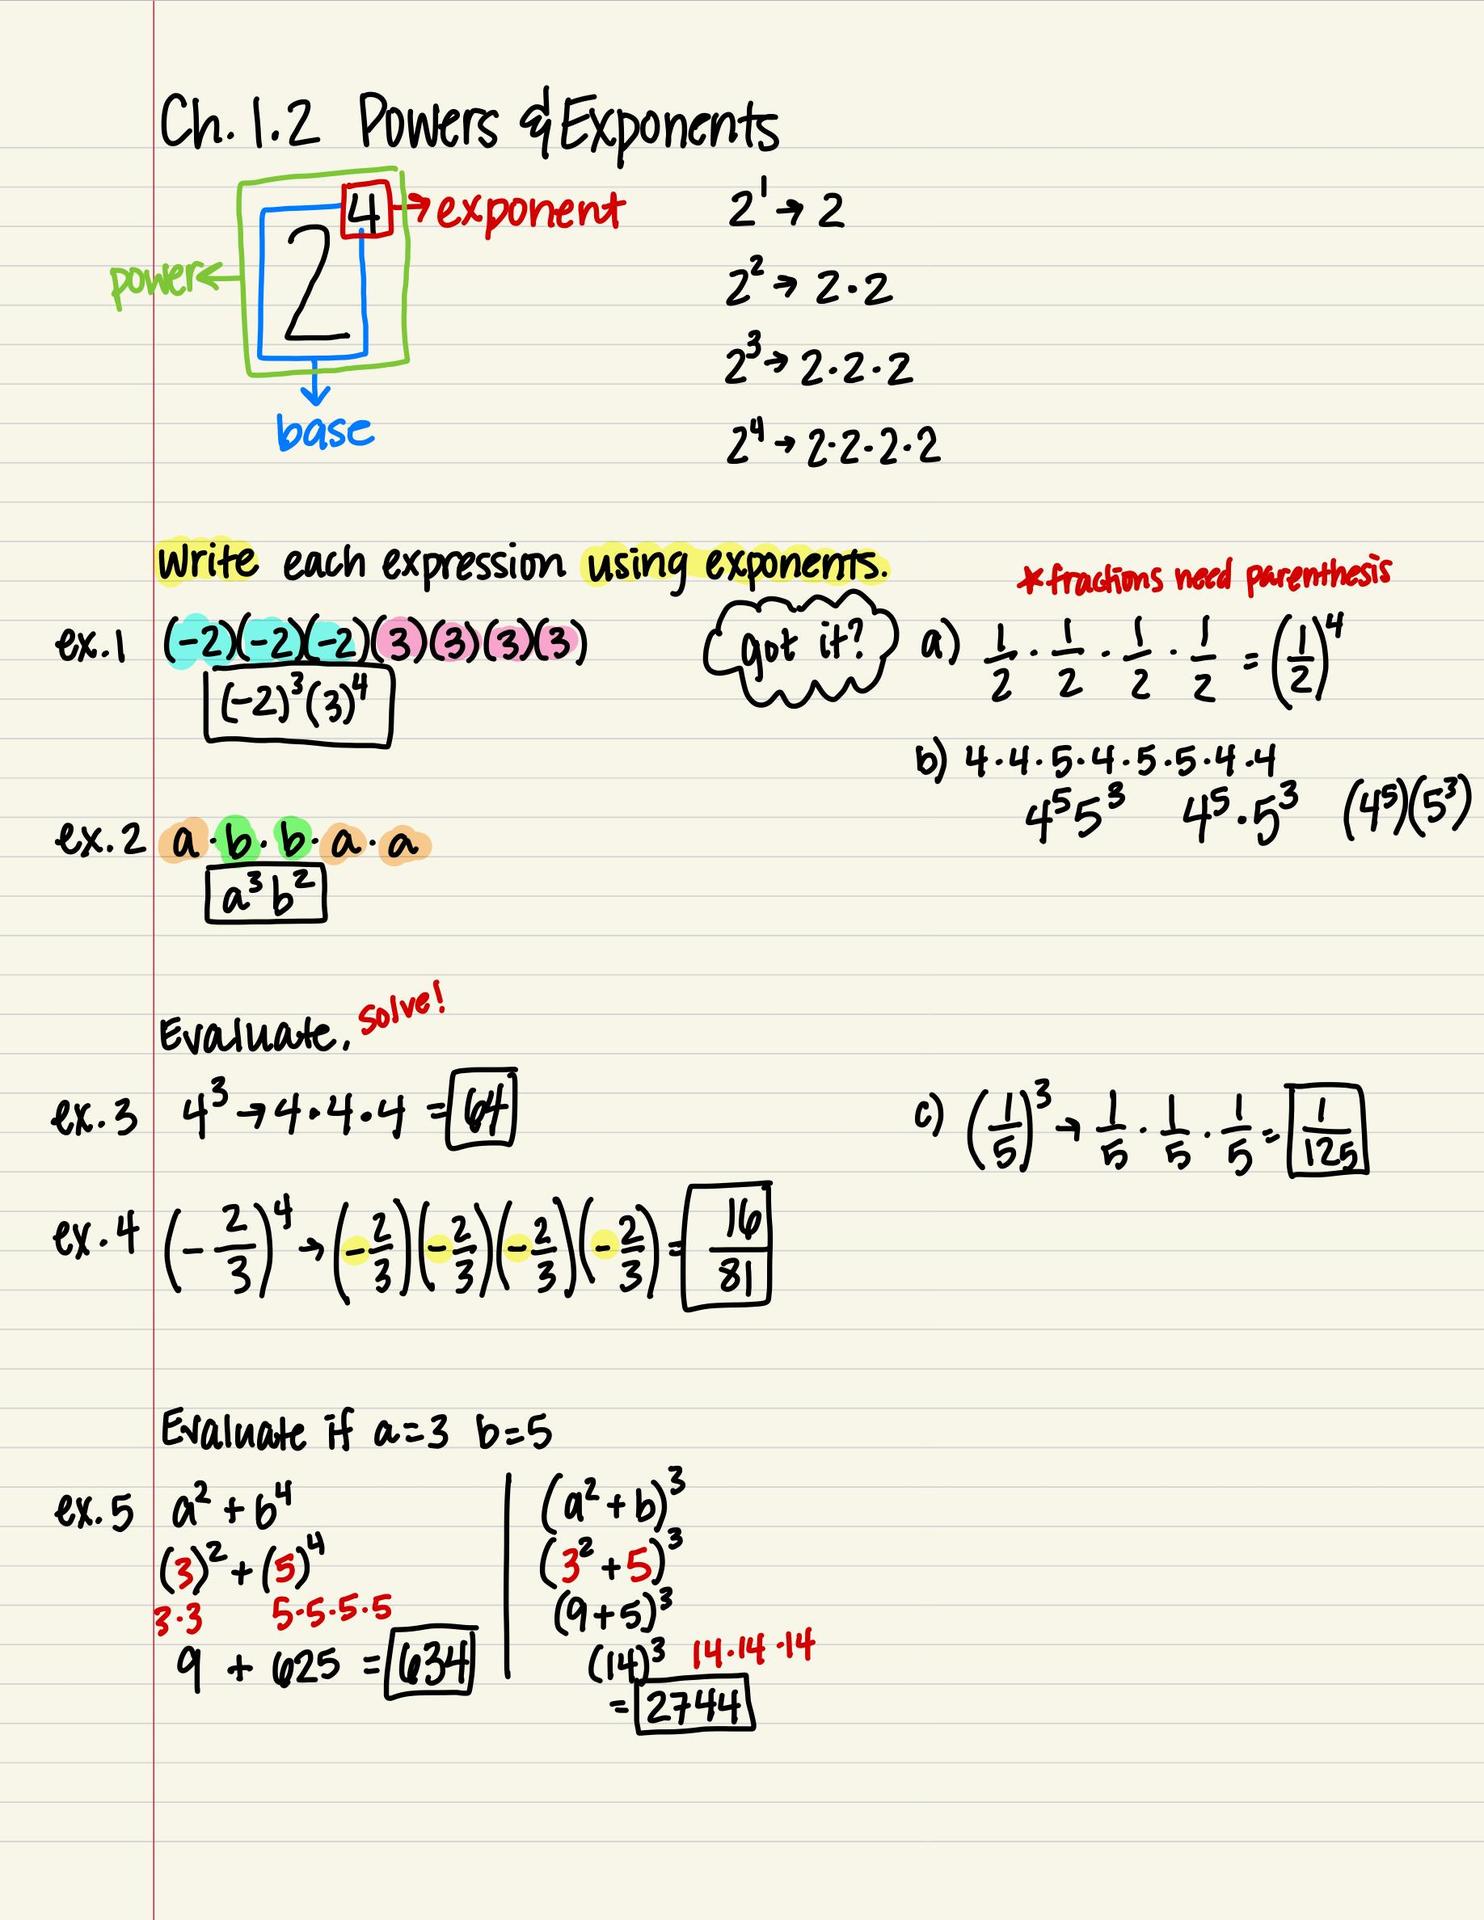 Ch. 1.2 Powers & Exponents
2⁴
→ exponent
power ←
base
2¹ → 2
2² → 2·2
2³ → 2·2·2
2⁴ → 2·2·2·2
Write each expression using exponents.
ex.1 (-2)(-2)(-2)(3)(3)(3)(3)
(-2)³(3)⁴
got it?
*fractions need parenthesis
a) 1/2 · 1/2 · 1/2 · 1/2 = (1/2)⁴
b) 4·4·5·4·5·5·4·4
4⁵5³ 4⁵·5³ (4⁵)(5³)
ex.2 a·b·b·a·a
a³b²
Evaluate. solve!
ex.3 4³ → 4·4·4 = 64
c) (1/5)³ → 1/5 · 1/5 · 1/5 = 1/125
ex.4 (-2/3)⁴ → (-2/3)(-2/3)(-2/3)(-2/3) = 16/81
Evaluate if a=3 b=5
ex.5 a² + b⁴
(3)² + (5)⁴
3·3 5·5·5·5
9 + 625 = 634
(a² + b)³
(3² + 5)³
(9+5)³
(14)³ 14·14·14
= 2744